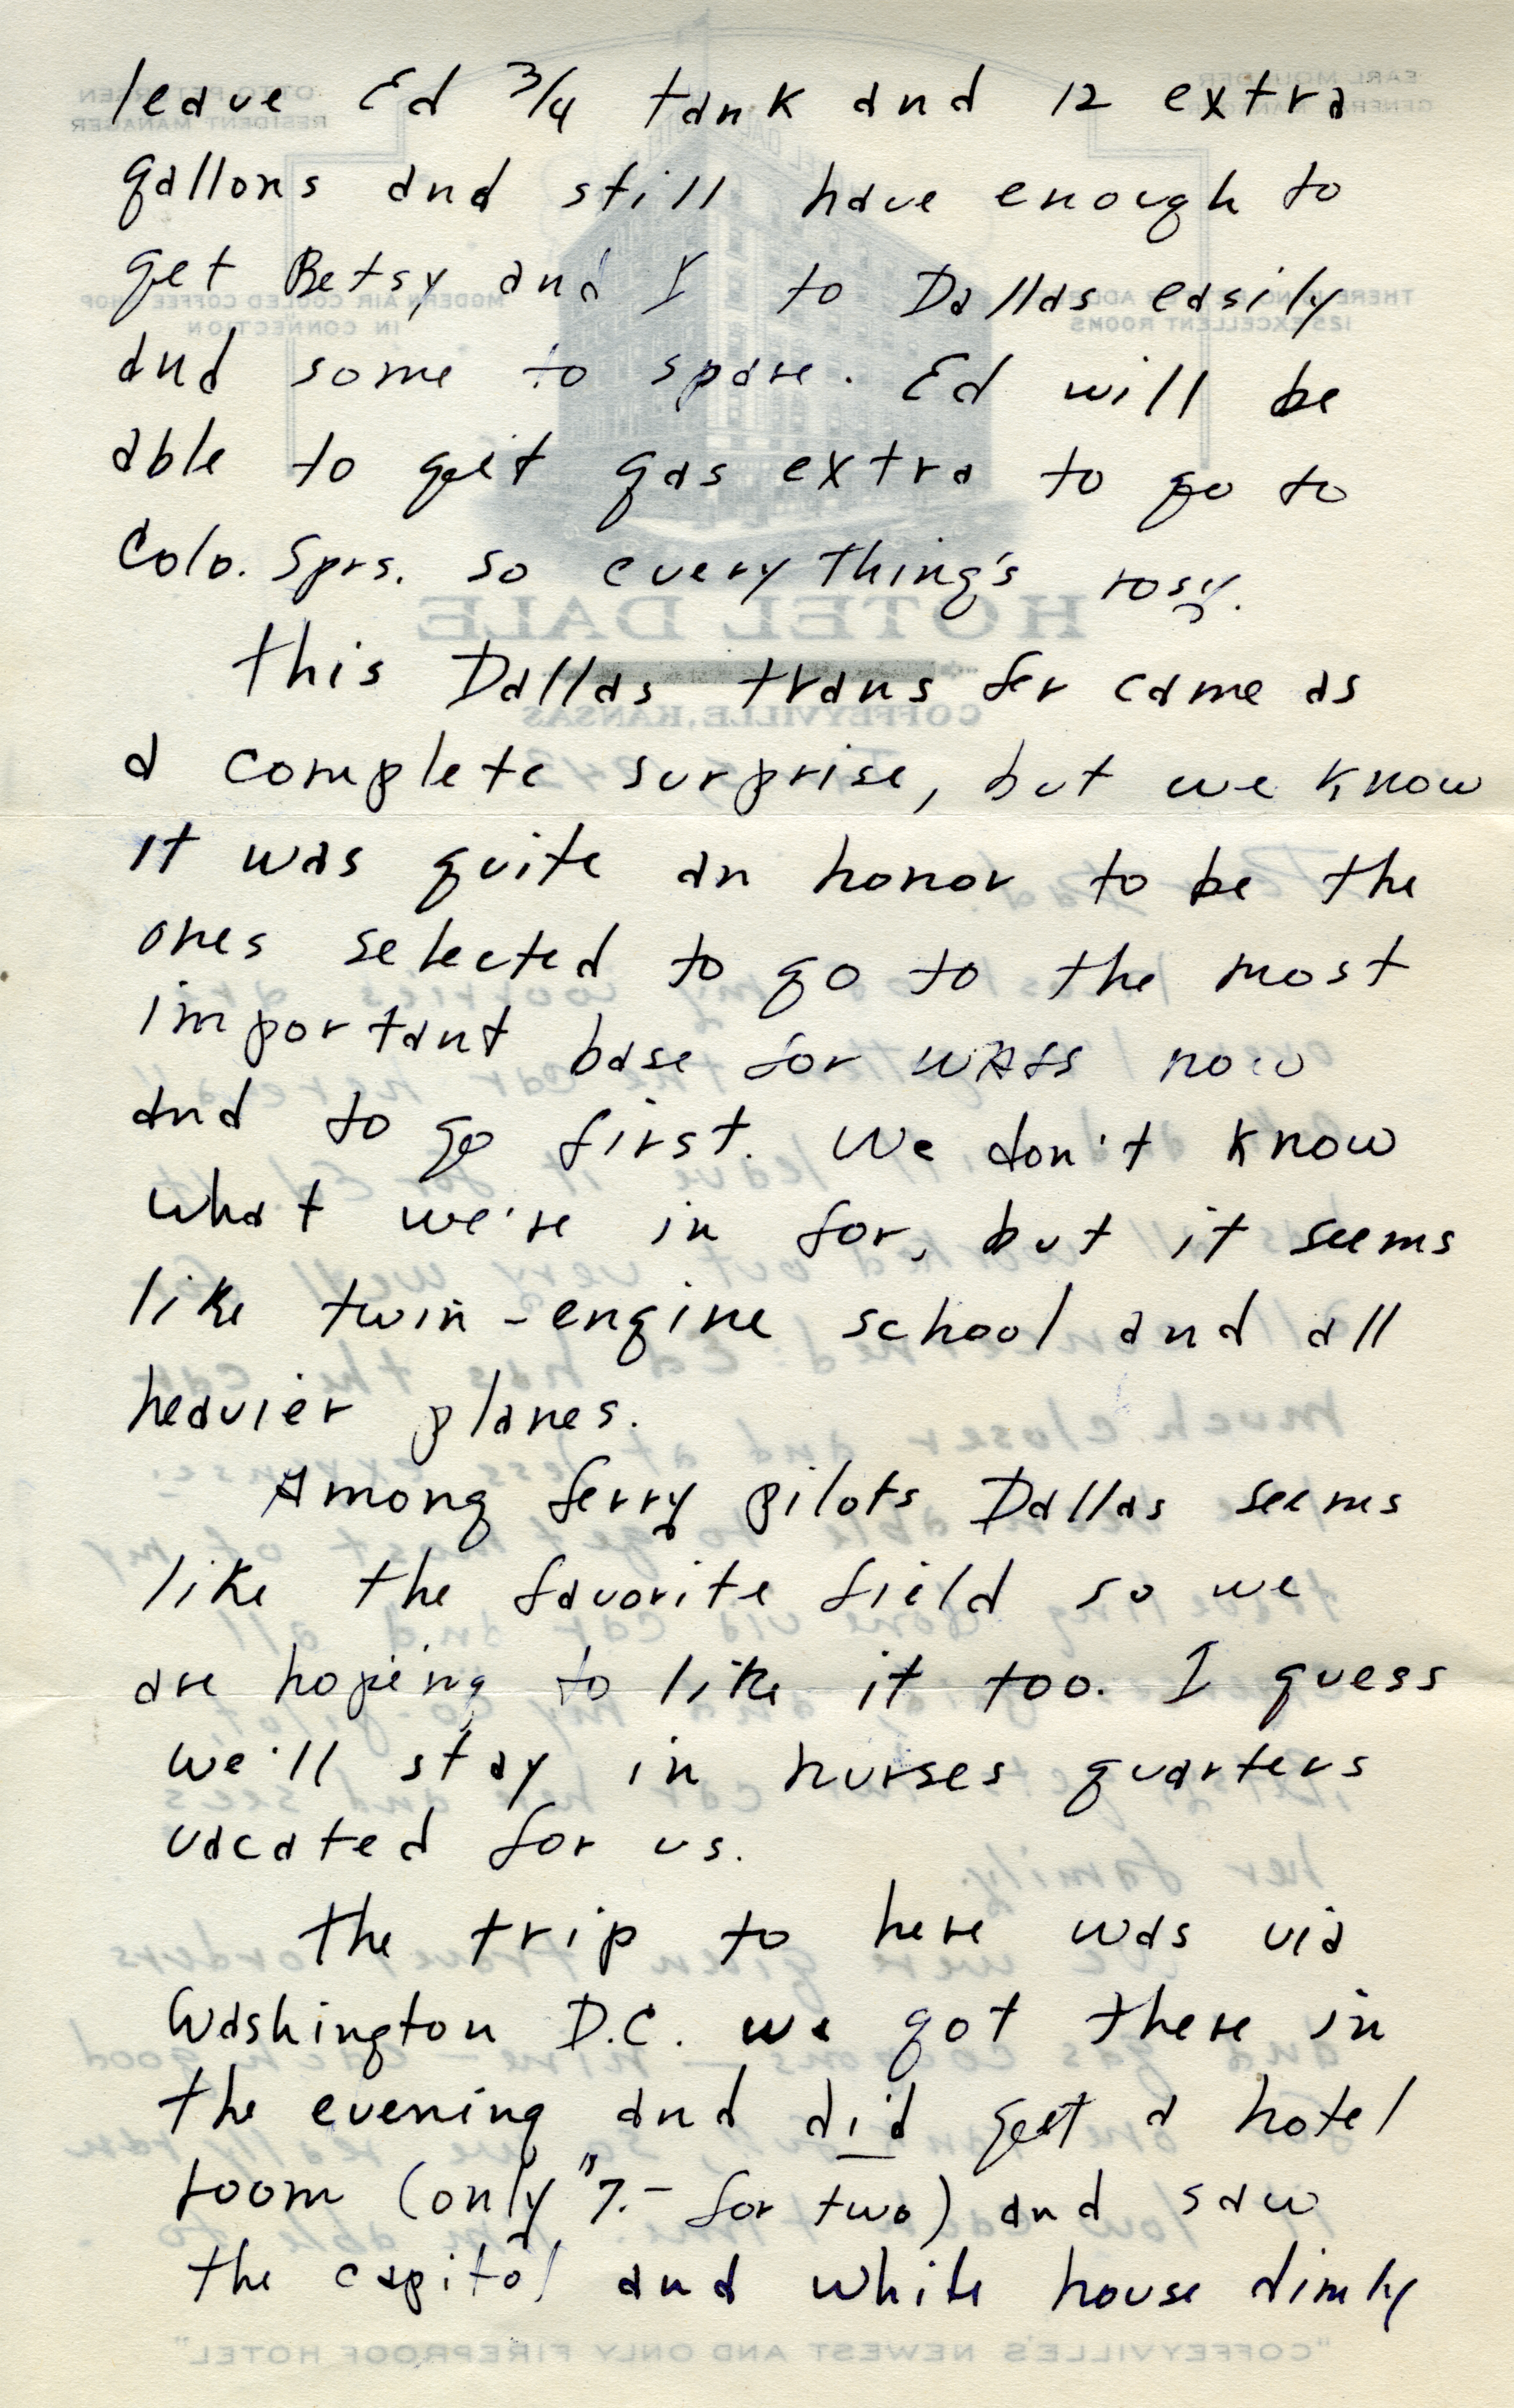 leave Ed 3/4 tank and 12 extra
gallons and still have enough to
get Betsy and I to Dallas easily
and some to spare. Ed will be
able to get gas extra to go to
Colo. Sprs. so every thing's rosy.
This Dallas transfer came as
a complete surprise, but we know
it was quite an honor to be the
ones selected to go to the most
important base for WAFS now
and to go first. We don't know
what we're in for, but it seems
like twin-engine school and all
heavier planes.
Among ferry pilots Dallas seems
like the favorite field so we
are hoping to like it too. I guess
we'll stay in nurses quarters
vacated for us.
The trip to here was via
Washington D.C. we got there in
the evening and did get a hotel
room (only "7.- for two) and saw
the capitol and white house dimly
HOTEL DALE
COFFEYVILLE, KANSAS
"COFFEYVILLE'S NEWEST AND ONLY FIREPROOF HOTEL"